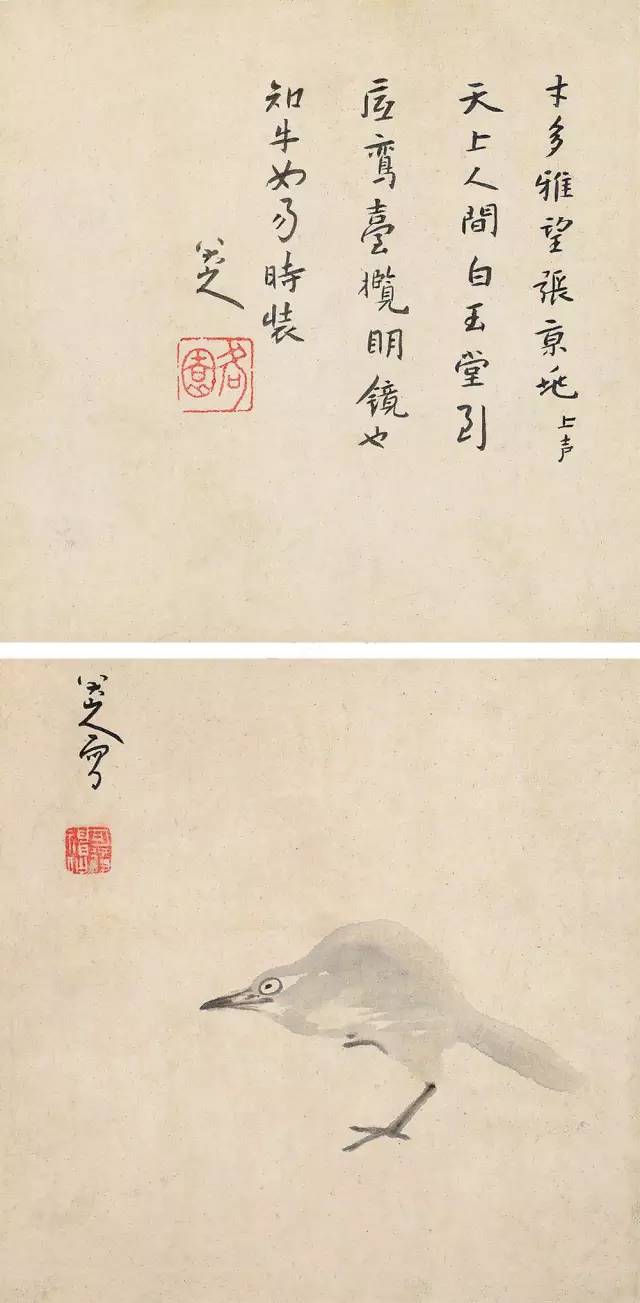 才多雅望張京兆 上声
天上人間白玉堂到
底鸞臺攬明鏡也
知牛女易時裝
八大山人
八大山人寫